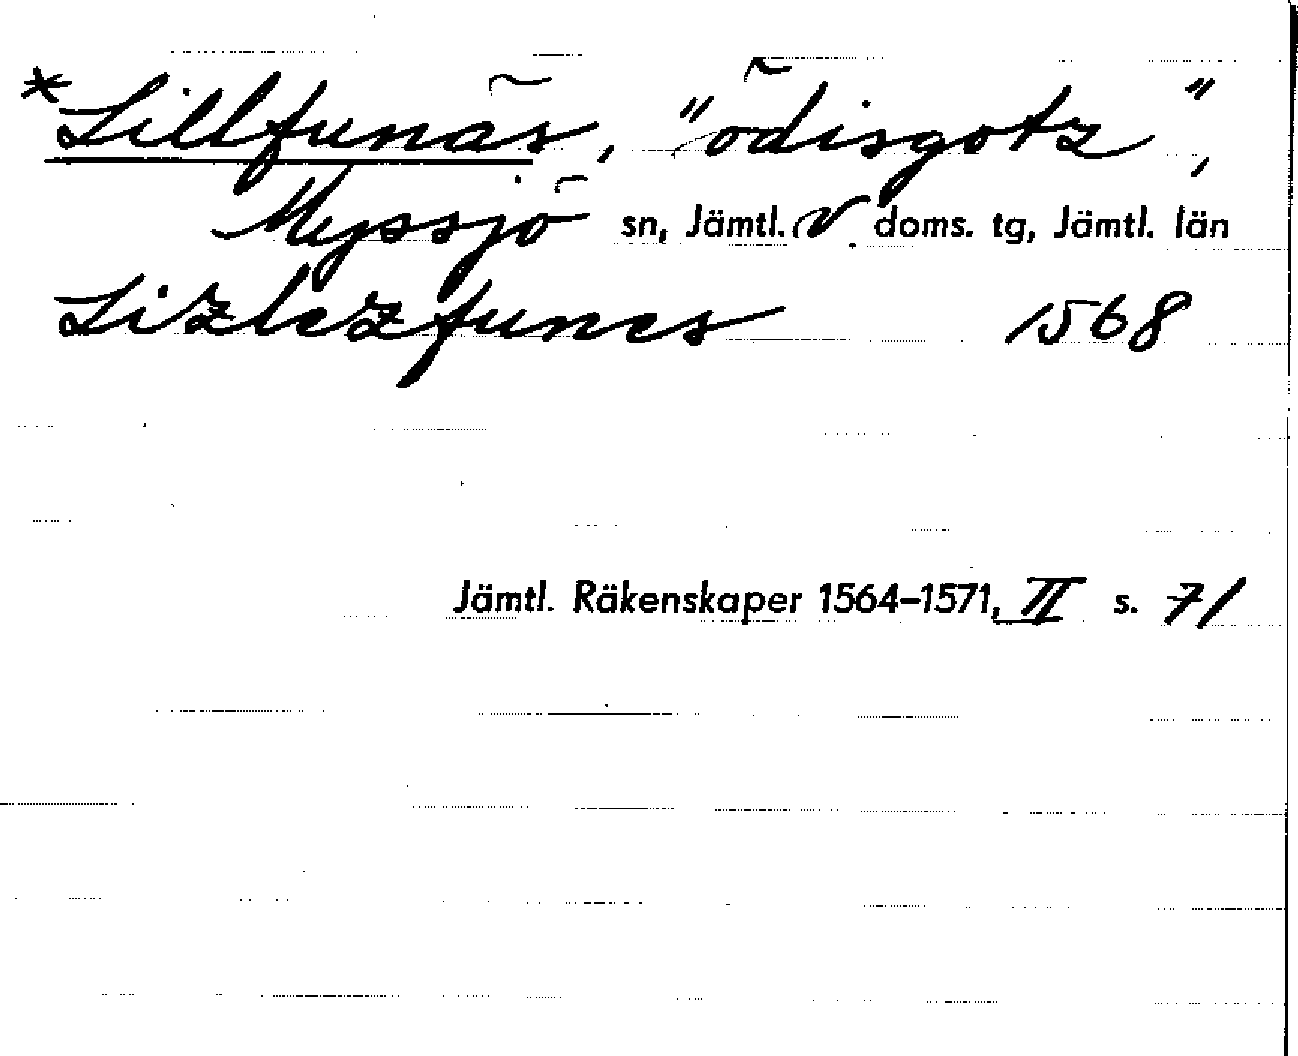 *Lillfunäs, "ödisgotz",
Myssjö sn, Jämtl. V doms. tg, Jämtl. län
Lizlezfunes 1568
Jämtl. Räkenskaper 1564–1571, II s. 71